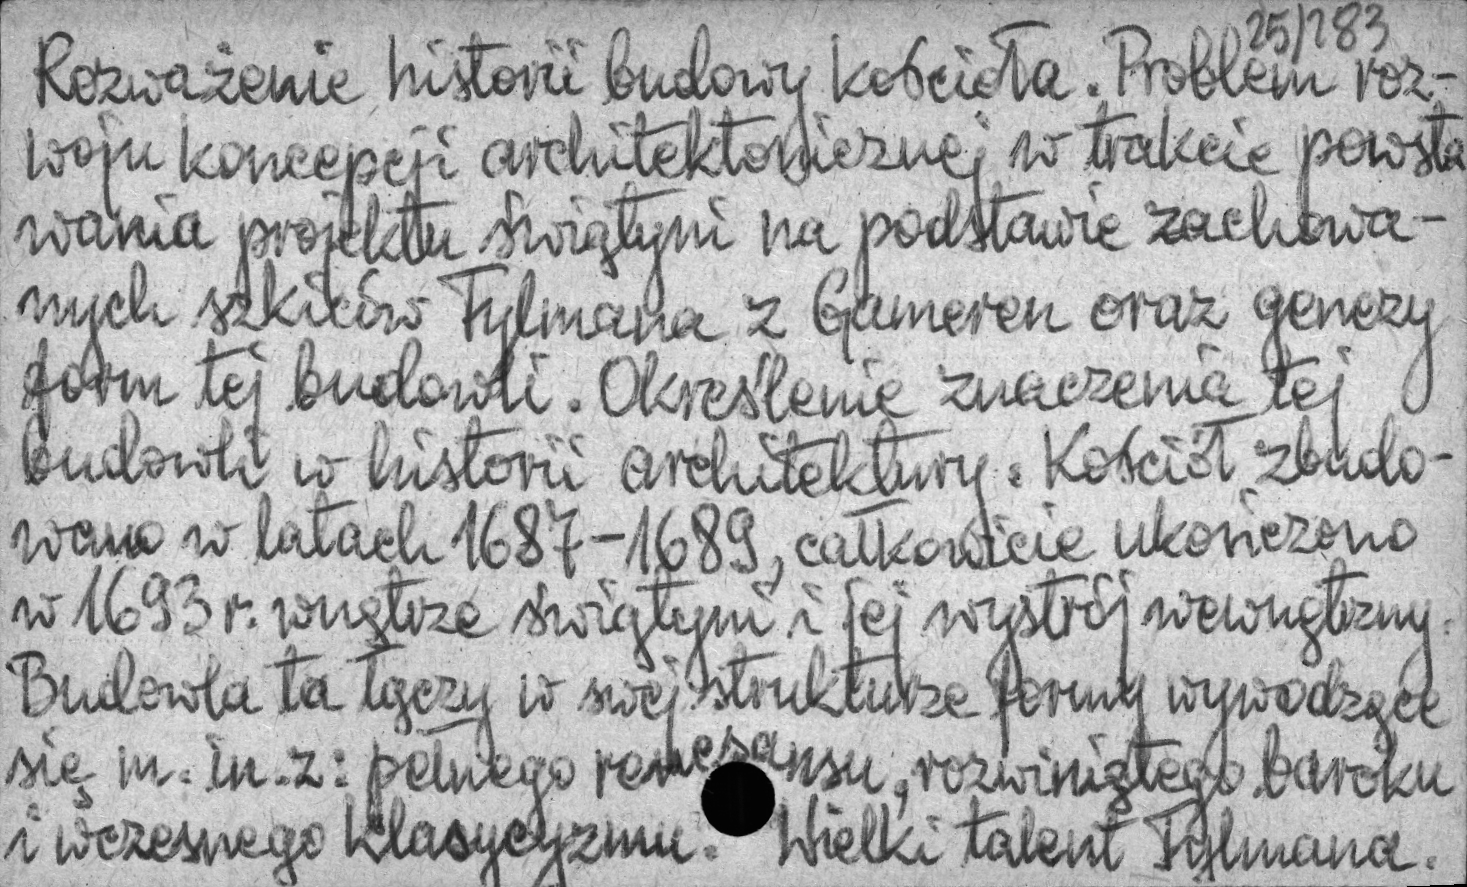 25/283
Rozważenie historii budowy kościoła. Problem roz-
woju koncepcji architektonicznej w trakcie powsta
wania projektu świątyni na podstawie zachowa-
nych szkiców Tylmana z Gameren oraz genezy
form tej budowli. Określenie znaczenia tej
budowli w historii architektury. Kościół zbudo-
wano w latach 1687-1689, całkowicie ukończono
w 1693 r. wnętrze świątyni i jej wystrój wewnętrzny.
Budowla ta łączy w swej strukturze formy wywodzące
się m. in. z: pełnego renesansu, rozwiniętego baroku
i wczesnego klasycyzmu. Wielki talent Tylmana.